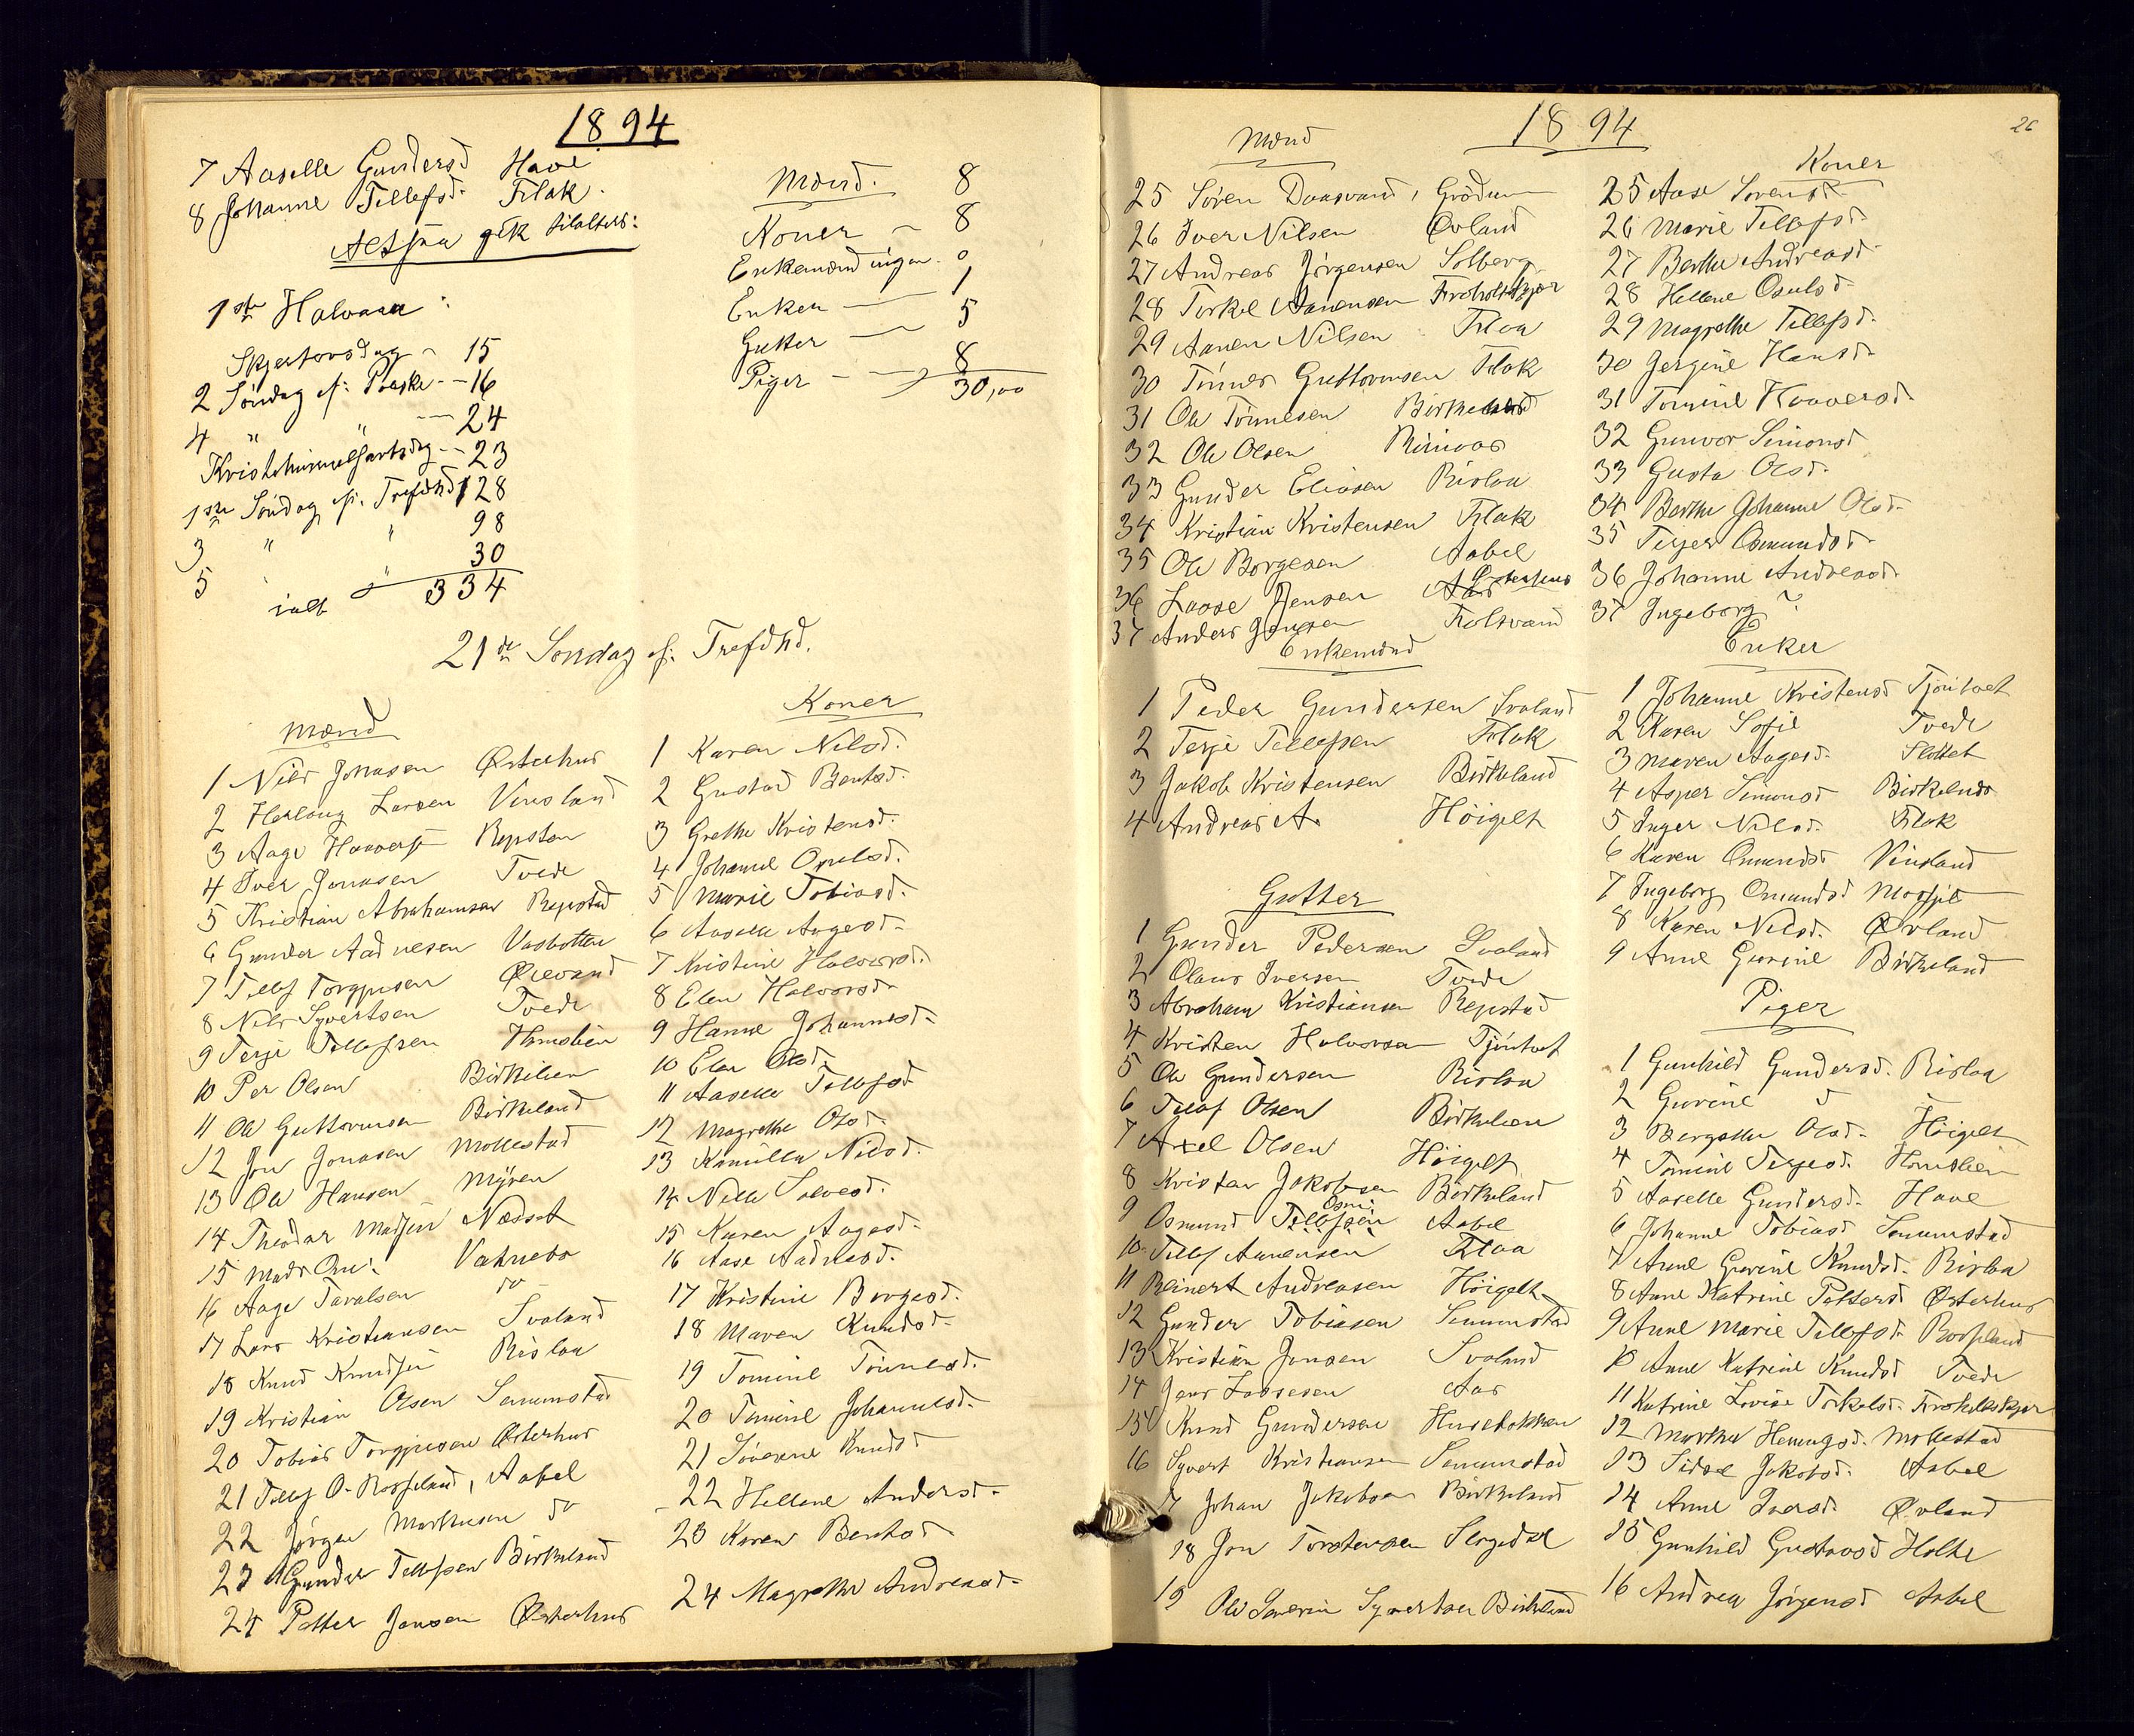 1894
7 Aaselle Gundersd Have
8 Johanne Tellefsd. Flak.
Altsaa gik tilalters:
Mænd. 8
Koner - 8
Enkemænd ingen. 0
Enker - 1
Gutter - 5
Piger - - 8
30,00
1ste Halvaar:
Skjertorsdag - 15
2 Söndag ef: Paaske - - 16
4 " " - 24
Kristihimmelfartsdag - - 23
1ste Söndag ef. Trefdhd 128
3 " " 98
5 " " 30
ialt 334
21de Söndag ef: Trefdhd.
Mænd
1 Nils Jonasen Østerhus
2 Larsen Vinsland
3 Aage Repstad
4 Iver Jonasen Tvede
5 Kristian Abrahamsen Repstad
6 Gunder Aadnesen Vasbotten
7 Tellef Torgjusen
8 Nils Syvertsen Tvede
9 Terje Tellefsen
10 Per Olsen Birkelien
11 Ole Guttormsen Birkeland
12 Jon Jonasen Mollestad
13 Ole Hansen Myren
14 Theodor Madsen Nædset
15 Mads Vatnebo
16 Aage Tavalsen do
17 Lars Kristiansen Svaland
18 Knud Knudsen Rislaa
19 Kristian Olsen Senumstad
20 Tobias Torgjusen Østerhus
21 Tellef O. Rosseland, Aabel
22 Jørgen Markusen do
23 Gunder Tellefsen Birkeland
24 Petter Jensen Østerhus
Koner
1 Karen Nilsd.
2 Gustad Bentsd.
3 Grethe Kristensd.
4 Johanne Osulsd.
5 Marie Tobiasd.
6 Aaselle Aagesd.
7 Kristine Halvorsd.
8 Elen Halvorsd.
9 Hanne Johannesd.
10 Elen Olsd.
11 Aaselle Tellefsd
12 Magrethe Olsd.
13 Kamilla Nilsd.
14 Nille Salvesd.
15 Karen Aagesd.
16 Aase Aadnesd.
17 Kristine Borgesd.
18 Maren Knudsd.
19 Tomine Tönnesd.
20 Tomine Johannesd.
21 Söverene Knudsd
22 Hellene Andersd.
23 Karen Bentsd
24 Magrethe Andreasd.
26
1894
Mænd
25 Sören Daasvand, Grödum
26 Iver Nilsen Øvland
27 Andreas Jörgensen Solberg
28 Torkel Aanensen Froholtskjær
29 Aanen Nilsen Flaa
30 Tönnes Guttormsen Flak
31 Ole Tönnesen Birkeland
32 Ole Olsen
33 Gunder Eliasen Rislaa
34 Kristian Kristensen Flak
35 Ole Borgesen Aabel
36 Lasse Jensen
37 Anders Jensen
Koner
25 Aase Sorensd
26 Marie Tellefsd.
27 Berthe Andreasd.
28 Hellene Osulsd.
29 Magrethe Tellefsd.
30 Jorgine Hansd.
31 Tomine
32 Gunvor Simonsd
33 Gusta Olsd.
34 Berthe Johanne Olsd.
35 Osmundsd.
36 Johanne Andreasd.
37 Ingeborg ?
Enkemænd
1 Peder Gundersen Svaland
2 Terje Tellefsen Flak
3 Jakob Kristensen Birkeland
4 Andreas A. Höigelt
Enker
1 Johanne Kristensd Tjöntvet
2 Karen Sofie Tvede
3 Maren Aagesd. Flottet
4 Asper Simonsd Birkeland
5 Inger Nilsd. Flak
6 Karen Osmundsd Vinsland
7 Ingeborg Osmundsd
8 Karen Nilsd. Øvland
9 Anne Gurine Birkeland
Gutter
1 Gunder Pedersen Svaland
2 Olaus Iversen Tvede
3 Abraham Kristiansen Repstad
4 Kristen Halvorsen Tjöntvet
5 Ole Gundersen Rislaa
6 Tellef Olsen Birkelien
7 Axel Olsen Höigelt
8 Kristen Jakobsen Birkeland
9 Osmund Tellefsen Aabel
10 Tellef Aanensen Flaa
11 Reinert Andreasen Höigelt
12 Gunder Tobiasen Senumstad
13 Kristian Jensen Svaland
14 Jens Lassesen Aas
15 Knud Gundersen
16 Syvert Kristiansen Senumstad
17 Johan Jakobsen Birkeland
18 Jon Torstensen
19 Ole Severin Syvertsen Birkeland
Piger
1 Gunhild Gundersd. Rislaa
2 Gurine d
3 Bergithe Olsd. Höigelt
4 Tomine Terjesd.
5 Aaselle Gundersd. Have
6 Johanne Tobiasd Senumstad
7 Anne Gurine Knudsd. Rislaa
8 Anne Katrine Pettersd Østerhus
9 Anne Marie Tellefsd. Rosseland
10 Anne Katrine Knudsd Tvede
11 Katrine Lovise Torkelsd. Froholtskjær
12 Marthe Mollestad
13 Sidsel Jakobsd. Aabel
14 Anne Iversd. Øvland
15 Gunhild Gustavsd Holte
16 Andrea Jörgensd Aabel